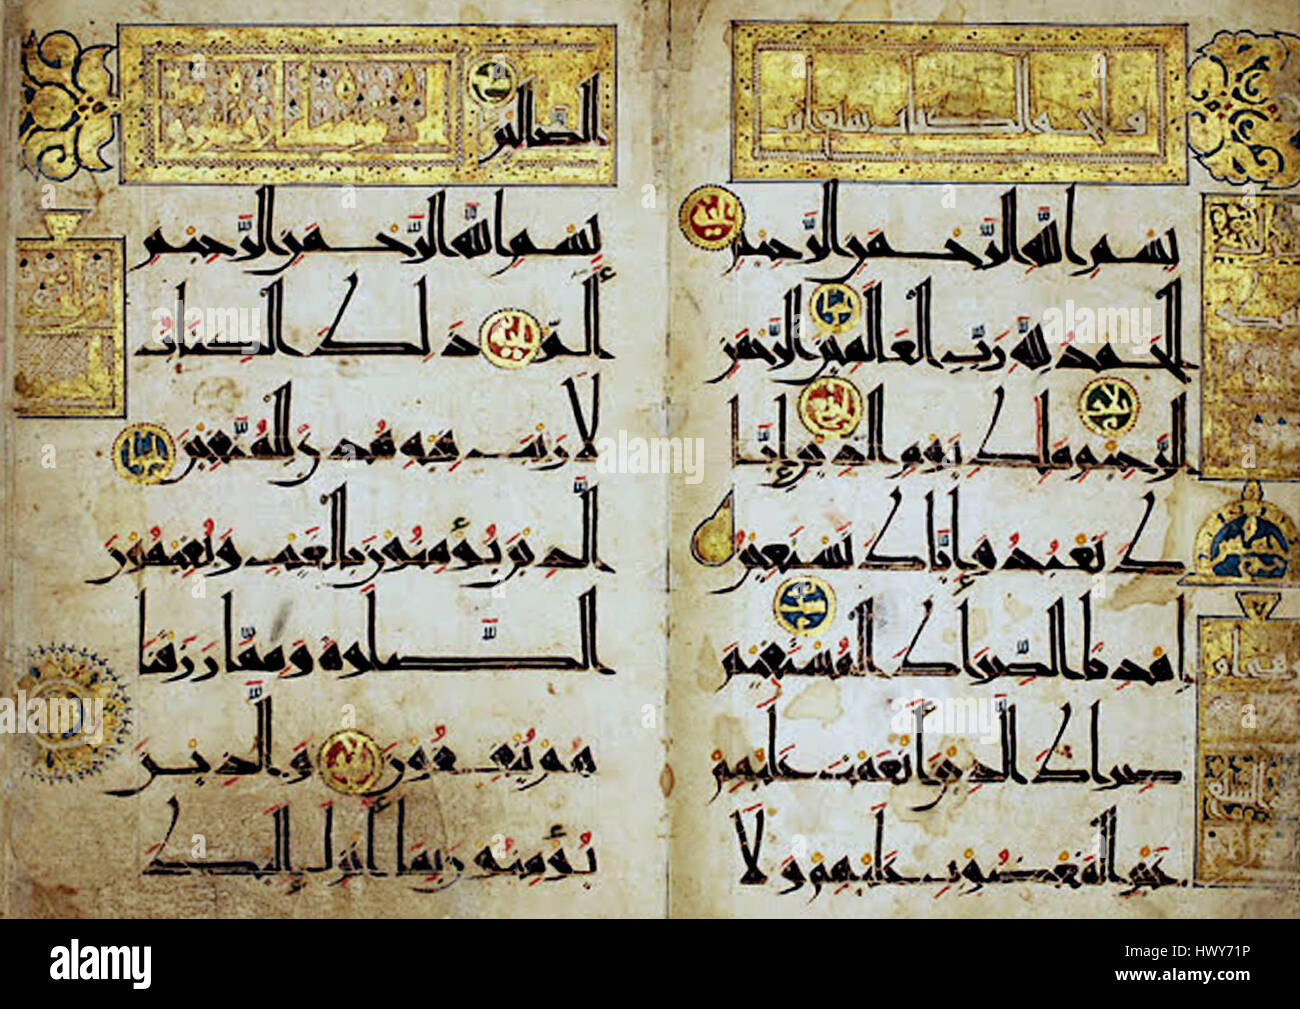 فاتحة الكتاب سبع آيات
بِسْمِ اللَّهِ الرَّحْمَنِ الرَّحِيمِ
الْحَمْدُ لِلَّهِ رَبِّ الْعَالَمِينَ الرَّحْمَنِ
الرَّحِيمِ مَلِكِ يَوْمِ الدِّينِ إِيَّا
كَ نَعْبُدُ وَإِيَّاكَ نَسْتَعِينُ
اهْدِنَا الصِّرَاطَ الْمُسْتَقِيمَ
صِرَاطَ الَّذِينَ أَنْعَمْتَ عَلَيْهِمْ
غَيْرِ الْمَغْضُوبِ عَلَيْهِمْ وَلَا
الضَّالِّينَ
بِسْمِ اللَّهِ الرَّحْمَنِ الرَّحِيمِ
الم ذَلِكَ الْكِتَابُ
لَا رَيْبَ فِيهِ هُدًى لِلْمُتَّقِينَ
الَّذِينَ يُؤْمِنُونَ بِالْغَيْبِ وَيُقِيمُونَ
الصَّلَوةَ وَمِمَّا رَزَقْنَا
هُمْ يُنْفِقُونَ وَالَّذِينَ
يُؤْمِنُونَ بِمَا أُنْزِلَ إِلَيْكَ
alamy stock photo
alamy
HWY71P
www.alamy.com